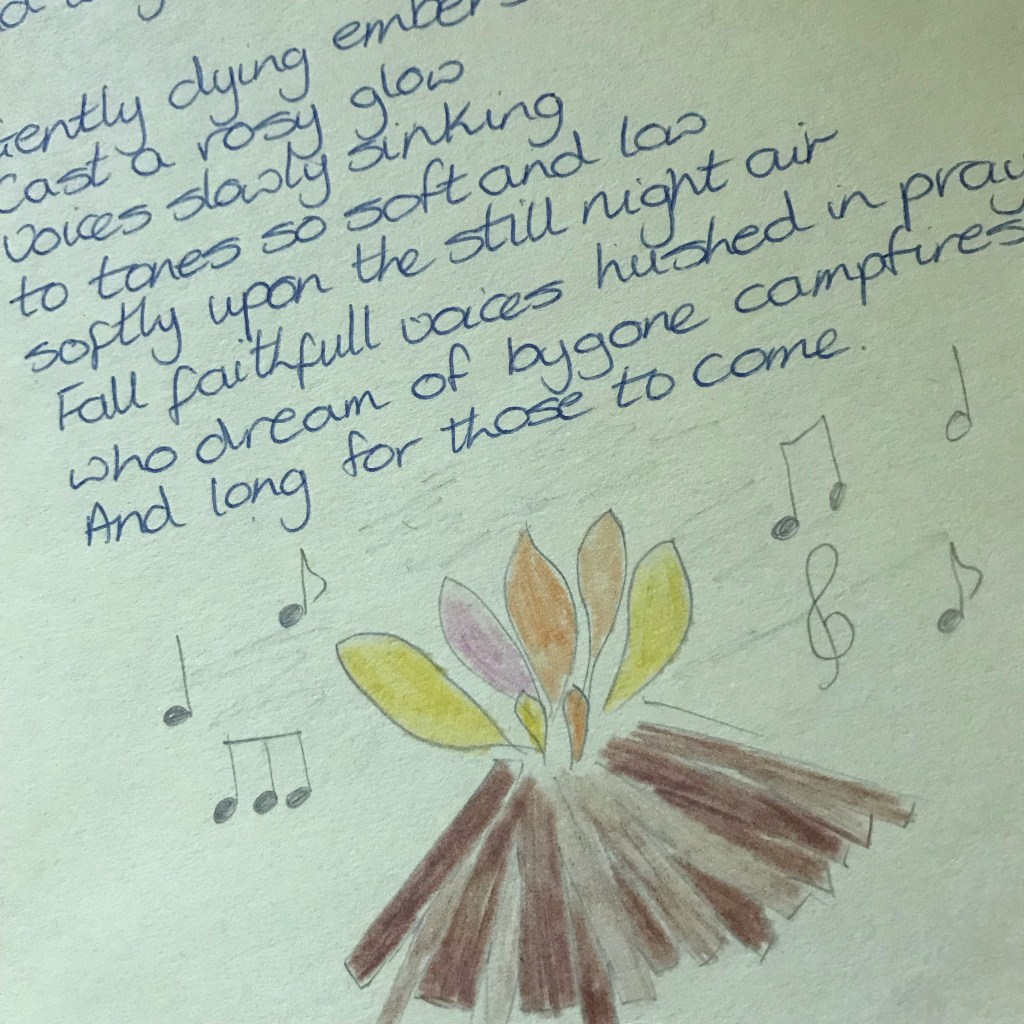 Gently dying embers
Cast a rosy glow
voices slowly sinking
to tones so soft and low
softly upon the still night air
Fall faithfull voices hushed in pray
who dream of bygone campfires
And long for those to come.